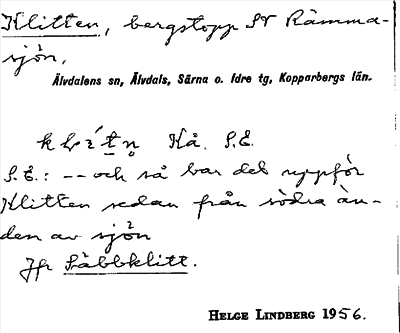 Klitten, bergstopp SVRåmma-
sjön,
Älvdalens sn, Älvdals, Särna o. Idre tg, Kopparbergs län.
Kå. S.E.
S.E.: -- och så bar det uppför
Klitten sedan från södra än-
den av sjön
Jfr Såbbklitt.
HELGE LINDBERG 1956.